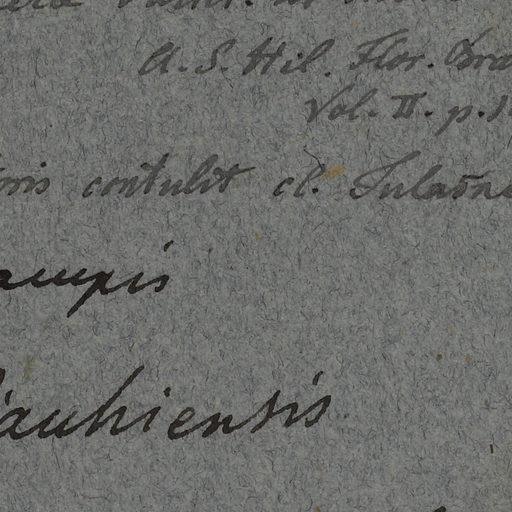 A. S. Hil. Flor. Bra
Vol. II. p. 1
contulit cl. Tulasne
ampis
iauhiensis